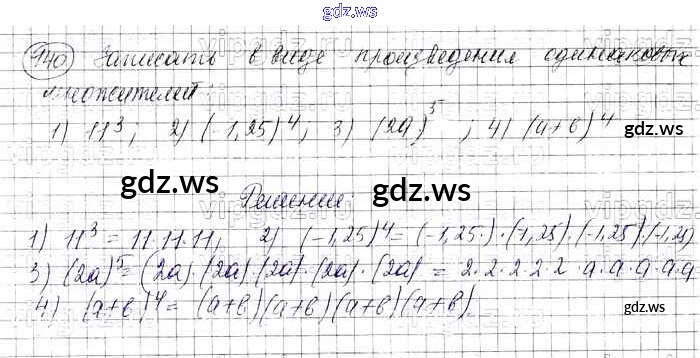 gdz.ws
140 Записать в виде произведения одинаковых
множителей
1) 11³; 2) (-1,25)⁴; 3) (2a)⁵; 4) (a+b)⁴ gdz.ws
gdz.ws gdz.ws
Решение:
1) 11³ = 11·11·11; 2) (-1,25)⁴ = (-1,25·)·(-1,25)·(-1,25)·(-1,25)
3) (2a)⁵ = (2a)·(2a)·(2a)·(2a)·(2a) = 2·2·2·2·2·a·a·a·a·a
4) (a+b)⁴ = (a+b)(a+b)(a+b)(a+b) gdz.ws
gdz.ws